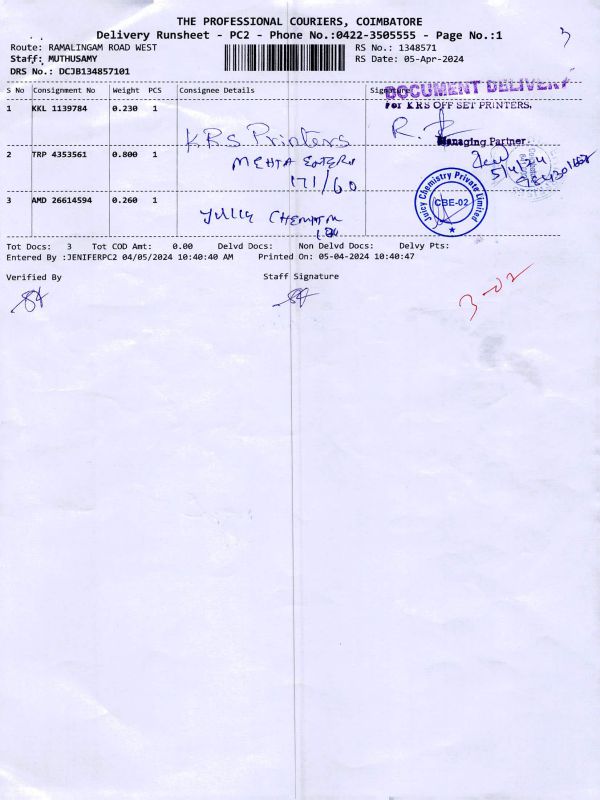 THE PROFESSIONAL COURIERS, COIMBATORE
Delivery Runsheet - PC2 - Phone No.:0422-3505555 - Page No.:1
Route: RAMALINGAM ROAD WEST
RS No.: 1348571
Staff: MUTHUSAMY
RS Date: 05-Apr-2024
DRS No.: DCJB134857101
3
S No Consignment No Weight PCS Consignee Details Signature
DOCUMENT DELIVERY
1 KKL 1139784 0.230 1
For KRS OFF SET PRINTERS,
KRS Printers
Managing Partner
2 TRP 4353561 0.800 1
171/60
5/4/24
3 AMD 26614594 0.260 1
Juicy Chemistry Private Limited
CBE-02
Tot Docs: 3 Tot COD Amt: 0.00 Delvd Docs: Non Delvd Docs: Delvy Pts:
Entered By :JENIFERPC2 04/05/2024 10:40:40 AM Printed On: 05-04-2024 10:40:47
Verified By Staff Signature
3-02